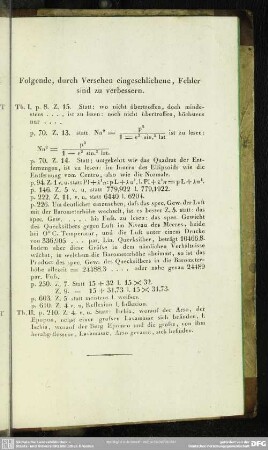 Folgende, durch Versehen eingeschlichene, Fehler
sind zu verbessern.
Th. I. p. 8. Z. 15. Statt: wo nicht übertroffen, doch minde-
stens . . . . , ist zu lesen: noch nicht übertroffen, höchstens
nur . . . .
p. 70. Z. 13. statt
ist zu lesen:
p. 70. Z. 14. Statt: umgekehrt wie das Quadrat der Ent-
fernungen, ist zu lesen: im Innern des Ellipsoids wie die
Entfernung vom Centro, also wie die Normale.
p. 146. Z. 5 v. u. statt 779,922 l. 779,1922.
p. 222. Z. 11. v. u. statt 6440 l. 6204.
p. 226. Um deutlicher einzusehen, daß das spec. Gew. der Luft
mit der Barometerhöhe wechselt, ist es besser Z. 5. statt: das
spec. Gew. . . . . bis Fuß, zu lesen: das spec. Gewicht
des Quecksilbers gegen Luft im Niveau des Meeres, beide
bei 0° C. Temperatur, und die Luft unter einem Drucke
von 336,905 . . . par. Lin. Quecksilber, beträgt 10466,8.
Indem aber diese Größe in dem nämlichen Verhältnisse
wächst, in welchem die Barometerhöhe abnimmt, so ist das
Product des spec. Gew. des Quecksilbers in die Barometer-
höhe allezeit = 24488,3 . . . . oder nahe genau 24489
par. Fuß.
p. 250. Z. 7. Statt 15 + 32 l. 15 × 32.
Z. 8. — 15 + 31,73 l. 15 × 31,73.
p. 603. Z. 5 statt montons l. weiter.
p. 610. Z. 4 v. u. Reflexion l. Inflexion.
Th. II. p. 210. Z. 4. v. u. Statt: Ischia, worauf der Arno, der
Epomeo, nebst einer großen Lavamasse sich befinden, l.
Ischia, worauf der Berg Epomeo und die große, von ihm
herabgeflossene, Lavamasse, Arso genannt, sich befinden.